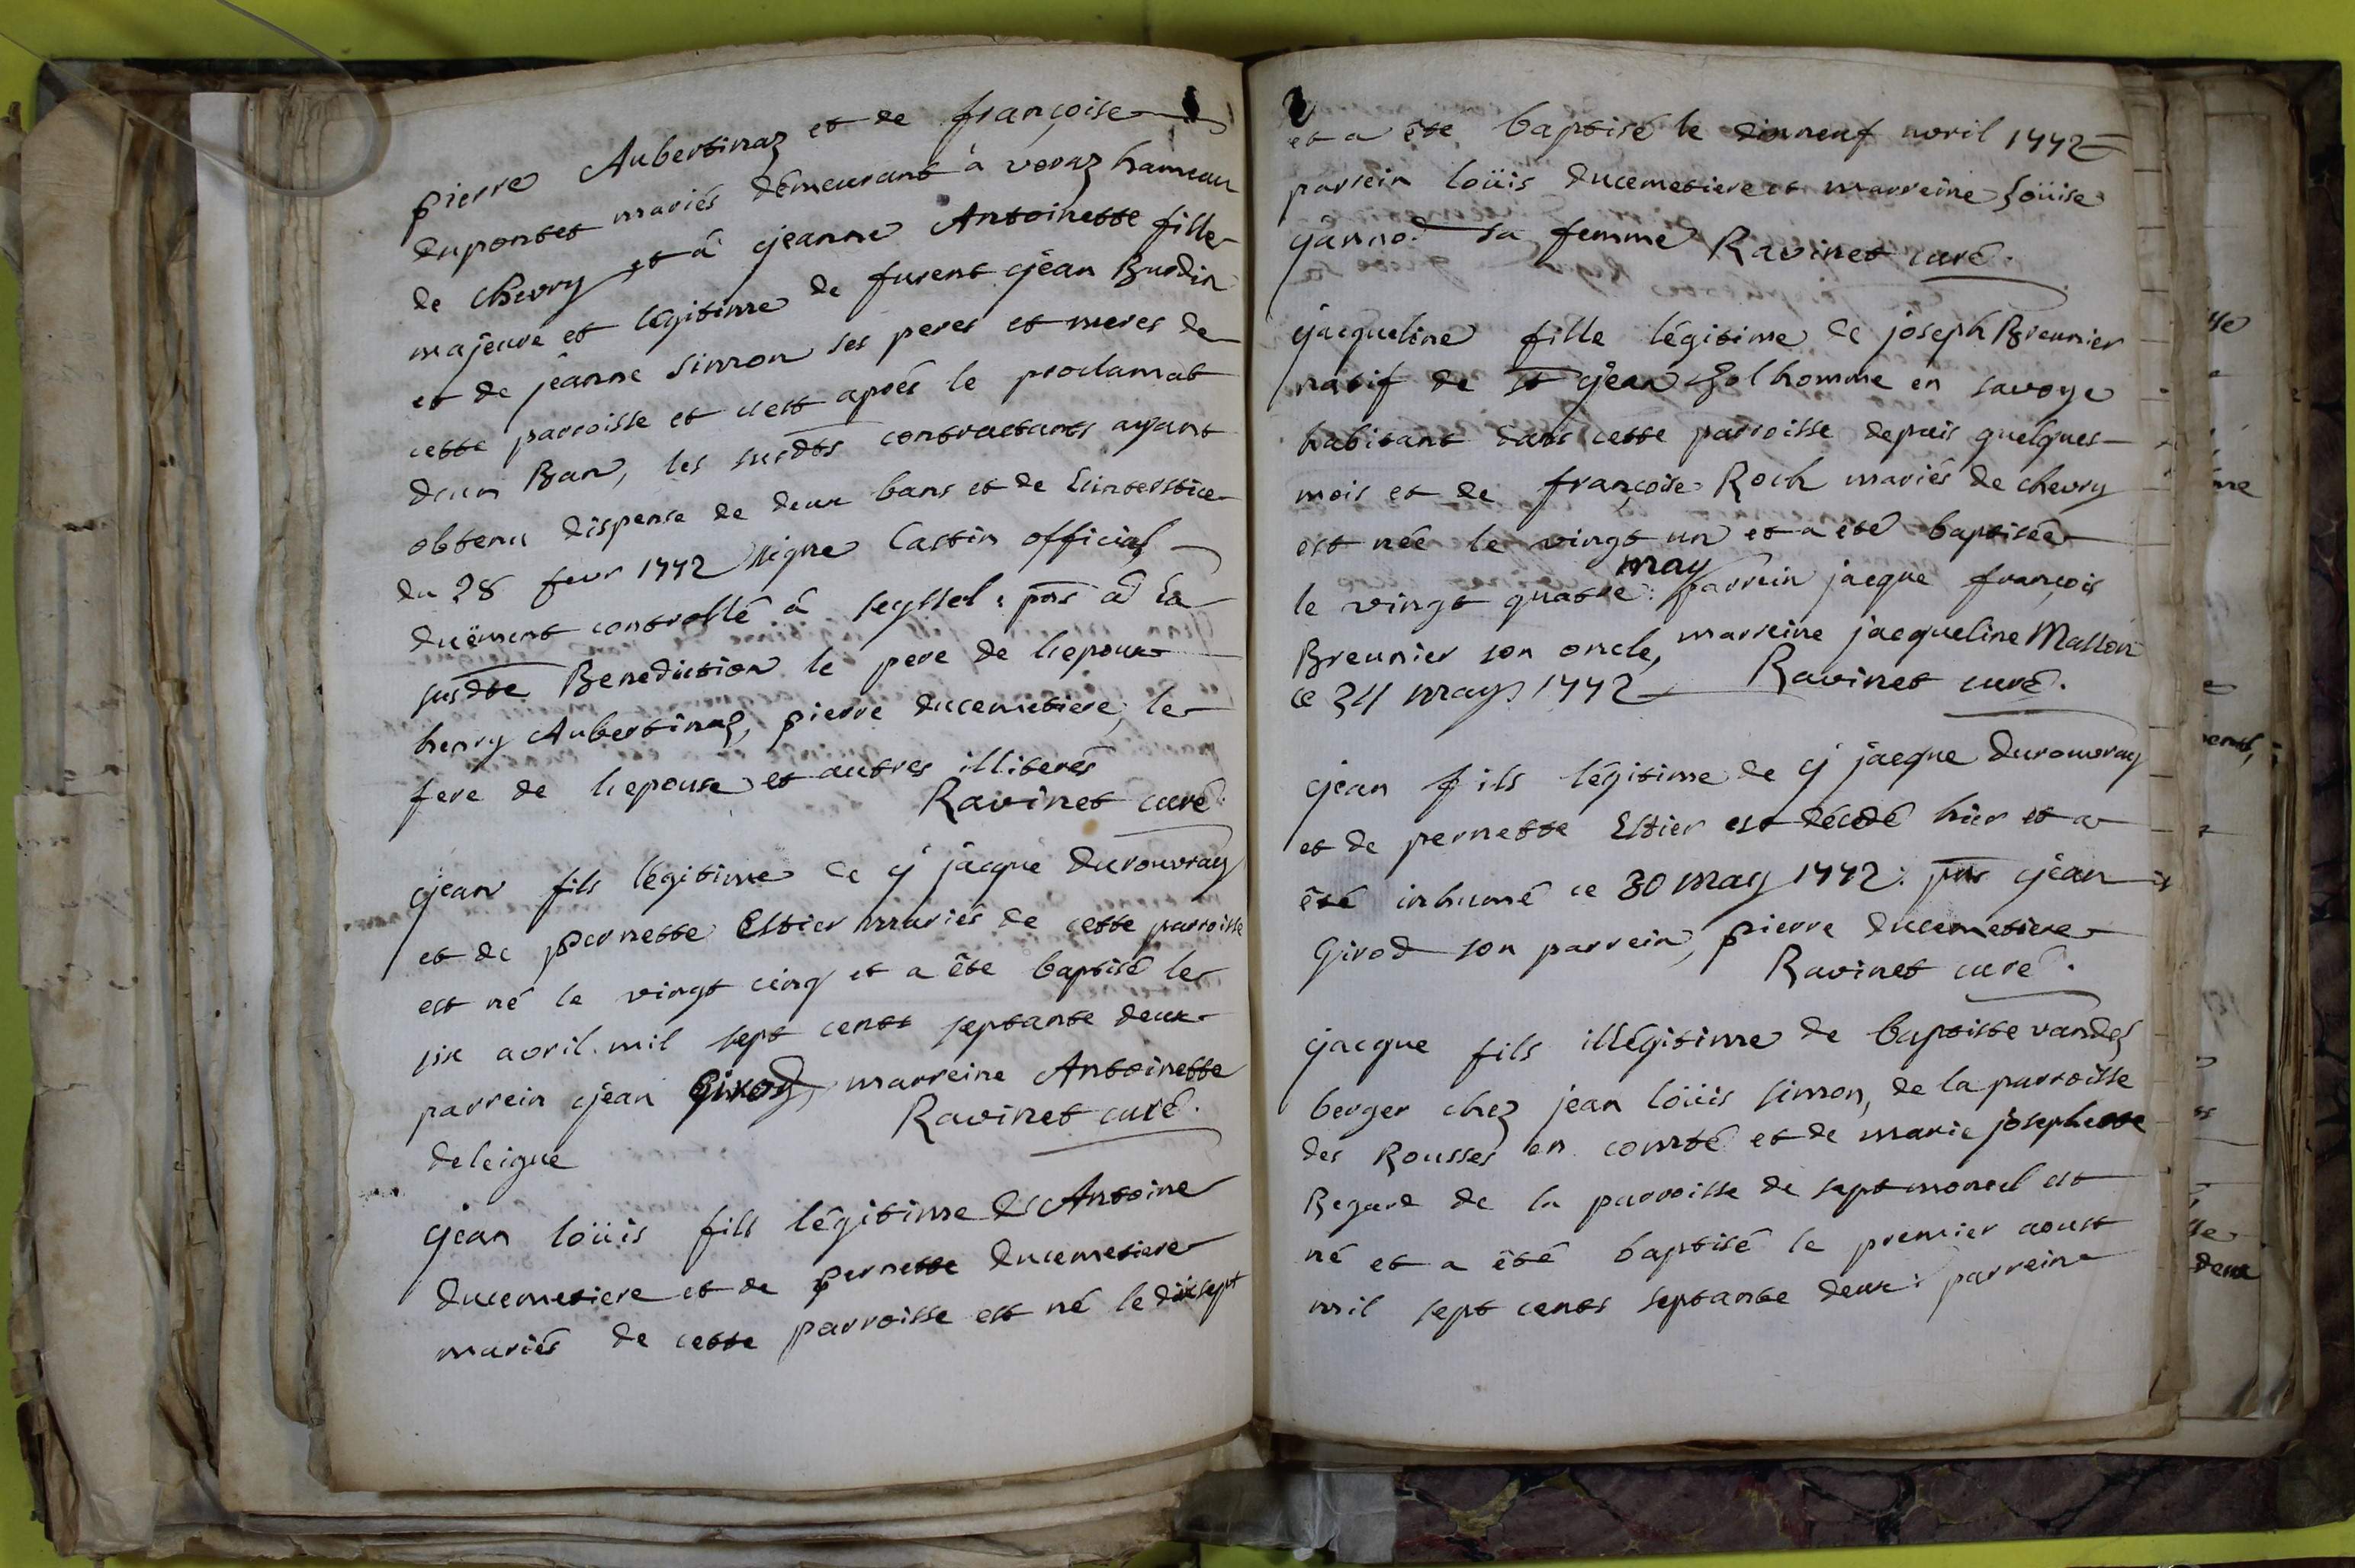 pierre Aubertinaz et de françoise
dupontet mariés demeurant à veraz hameau
de chevry et à jeanne Antoinette fille
majeure et légitime de furent jean Burdin
et de jeanne simon ses peres et meres de
cette parroisse et c'est aprés le proclamat
d'un Ban, les susdts contractants ayant
obtenu dispense de deux bans et de l'interstice
du 28 fevr 1772 signe Castin official
duëment controllé à seyssel: pnt à la
susdte Benediction le pere de l'epoux
henry Aubertinaz, pierre ducemetiere, le
fere de l'epouse et autres illiterés
Ravinet curé
jean fils légitime de j jacque Durouvray
et de pernette Estier mariés de cette parroisse
est né le vingt cinq et a été baptisé le
six avril mil sept cents septante deux
parrein jean Girod, marreine Antoinette
Ravinet curé.
deleigue
jean loüis fils légitime de Antoine
ducemetiere et de pernette ducemetiere
mariés de cette parroisse est né le dixsept
et a été baptisé le dixneuf avril 1772
parrein loüis ducemetiere et marreine Loüise
garnod sa femme Ravinet curé.
jacqueline fille légitime de joseph Breunier
natif de st jean tolhomme en savoye
habitant dans cette parroisse depuis quelques
mois et de françoise Roch mariés de chevry
est née le vingt un et a été baptisée
may
le vingt quatre: parrein jacque françois
Breunier son oncle, marreine jacqueline Masson
ce 24 may 1772 Ravinet curé.
jean fils légitime de j jacque durouvray
et de pernette Estier est décédé hier et a
été inhumé ce 30 may 1772: pnt jean
Girod son parrein, pierre ducemetiere
Ravinet curé.
jacque fils illégitime de baptiste vandel
berger chez jean loüis simon, de la parroisse
des Rousses en comté et de marie josephette
Regard de la parroisse de septmoncel est
né et a été baptisé le premier aoust
mil sept cents septante deux: parreine